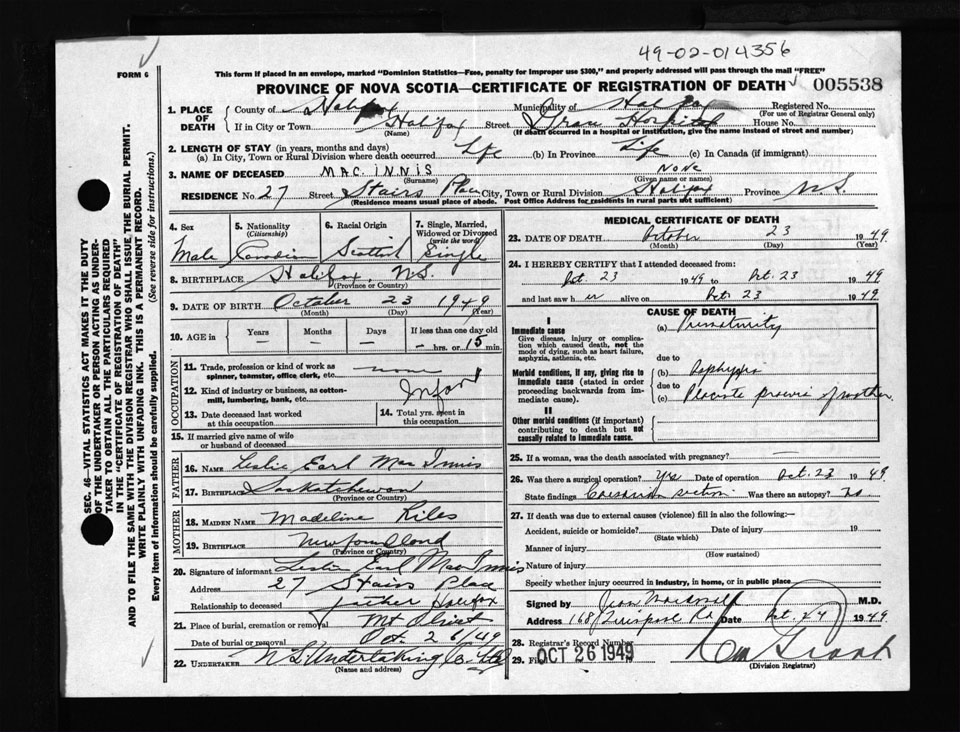 49-02-014356
FORM 6
This form if placed in an envelope, marked "Dominion Statistics—Free, penalty for improper use $300," and properly addressed will pass through the mail "FREE"
PROVINCE OF NOVA SCOTIA—CERTIFICATE OF REGISTRATION OF DEATH 005538
SEC. 46—VITAL STATISTICS ACT MAKES IT THE DUTY
OF THE UNDERTAKER OR PERSON ACTING AS UNDER-
TAKER TO OBTAIN ALL THE PARTICULARS REQUIRED
IN THE "CERTIFICATE OF REGISTRATION OF DEATH"
AND TO FILE THE SAME WITH THE DIVISION REGISTRAR WHO SHALL ISSUE THE BURIAL PERMIT.
WRITE PLAINLY WITH UNFADING INK. THIS IS A PERMANENT RECORD.
Every item of information should be carefully supplied. (See reverse side for instructions.)
1. PLACE OF DEATH
County of Halifax Municipality of Halifax Registered No.
(For use of Registrar General only)
If in City or Town Halifax Street Hospital House No.
(Name) (If death occurred in a hospital or institution, give the name instead of street and number)
2. LENGTH OF STAY (in years, months and days)
(a) In City, Town or Rural Division where death occurred Life (b) In Province Life (c) In Canada (if immigrant)
3. NAME OF DECEASED MAC INNIS None
(Surname) (Given name or names)
RESIDENCE No. 27 Street Stairs Place City, Town or Rural Division Halifax Province N.S.
(Residence means usual place of abode. Post Office Address for residents in rural parts not sufficient)
4. Sex Male
5. Nationality (Citizenship) Canadian
6. Racial Origin Scottish
7. Single, Married, Widowed or Divorced (write the word) Single
8. BIRTHPLACE Halifax, N.S.
(Province or Country)
9. DATE OF BIRTH October 23 1949
(Month) (Day) (Year)
10. AGE in Years Months Days If less than one day old
— — — — hrs. or 15 min.
OCCUPATION
11. Trade, profession or kind of work as
spinner, teamster, office clerk, etc. none
12. Kind of industry or business, as cotton-
mill, lumbering, bank, etc. Infant
13. Date deceased last worked
at this occupation
14. Total yrs. spent in
this occupation
15. If married give name of wife
or husband of deceased
FATHER
16. NAME Leslie Earl MacInnis
17. BIRTHPLACE Saskatchewan
(Province or Country)
MOTHER
18. MAIDEN NAME Madeline Kiles
19. BIRTHPLACE Newfoundland
(Province or Country)
20. Signature of informant Leslie Earl MacInnis
Address 27 Stairs Place
Relationship to deceased father Halifax
21. Place of burial, cremation or removal Mt Olivet
Date of burial or removal Oct. 26/49
22. UNDERTAKER N S Undertaking Co. Ltd
(Name and address)
MEDICAL CERTIFICATE OF DEATH
23. DATE OF DEATH October 23 1949
(Month) (Day) (Year)
24. I HEREBY CERTIFY that I attended deceased from:
Oct. 23 1949 to Oct. 23 1949
and last saw h er alive on Oct 23 1949
CAUSE OF DEATH
I
Immediate cause (a) Prematurity
Give disease, injury or complica-
tion which caused death, not the
mode of dying, such as heart failure,
asphyxia, asthenia, etc.
due to
Morbid conditions, if any, giving rise
to immediate cause (stated in order
of proceeding backwards from im-
mediate cause).
(b) Asphyxia
due to
(c) Placenta praevia of mother.
II
Other morbid conditions (if important)
contributing to death but not
causally related to immediate cause.
25. If a woman, was the death associated with pregnancy? —
26. Was there a surgical operation? Yes Date of operation Oct. 23 1949
State findings Caesarian section Was there an autopsy? No
27. If death was due to external causes (violence) fill in also the following:
Accident, suicide or homicide? Date of injury 19
(State which)
Manner of injury
(How sustained)
Nature of injury
Specify whether injury occurred in industry, in home, or in public place
Signed by Jean M.D.
Address 168 Rd Date Oct. 24 1949
28. Registrar's Record Number
29. OCT 26 1949
(Division Registrar)